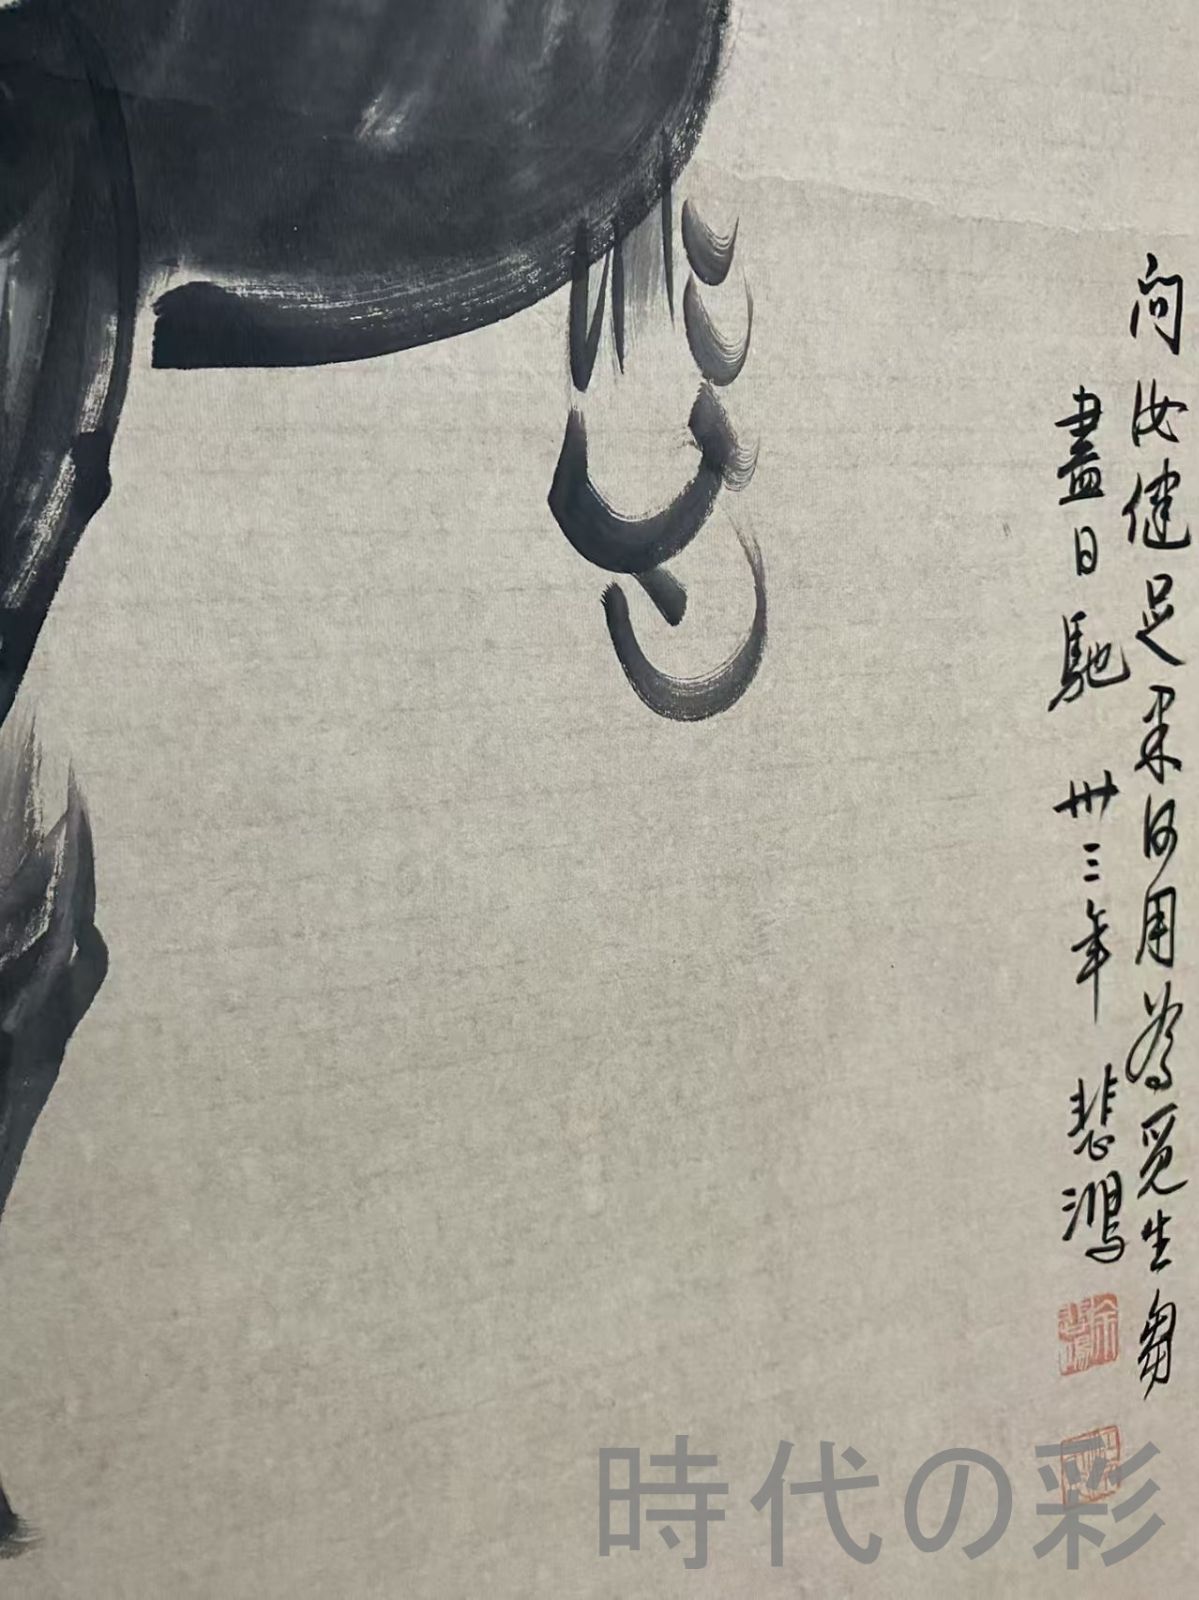 问汝健足果何用為覓生芻
盡日馳 卅三年 悲鴻
徐悲鴻
時代の彩